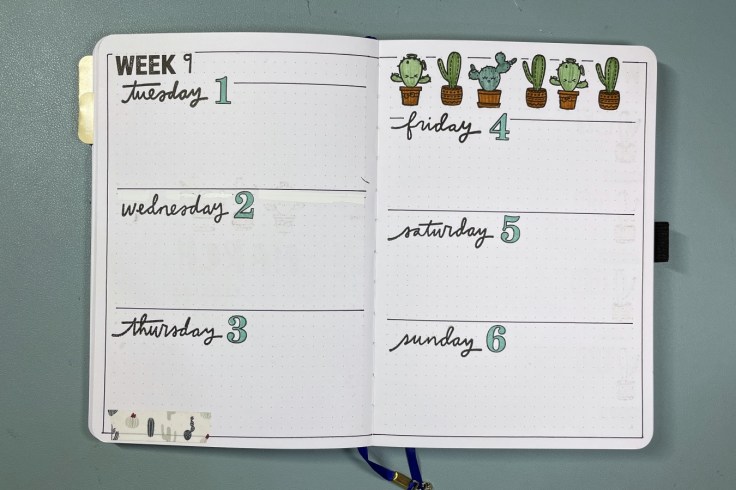 WEEK 9
tuesday 1
wednesday 2
thursday 3
friday 4
saturday 5
sunday 6